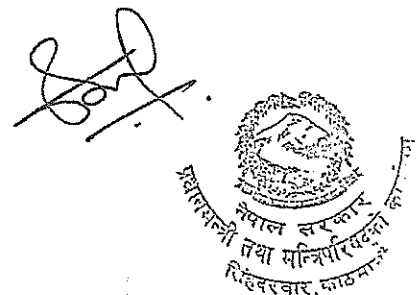 नेपाल सरकार
प्रधानमन्त्री तथा मन्त्रिपरिषद्को
सिंहदरवार, काठमाडौं